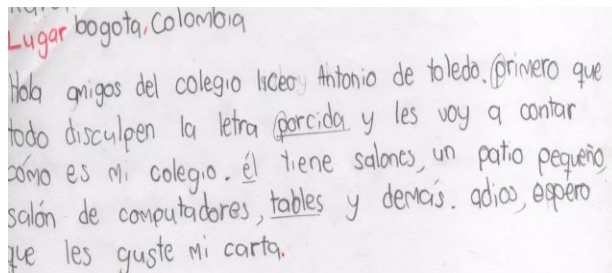 Lugar bogota, Colombia
Hola amigos del colegio liceo Antonio de toledo. primero que
todo disculpen la letra porcida y les voy a contar
cómo es mi colegio. él tiene salones, un patio pequeño,
salón de computadores, tables y demás. adios, espero
que les guste mi carta.